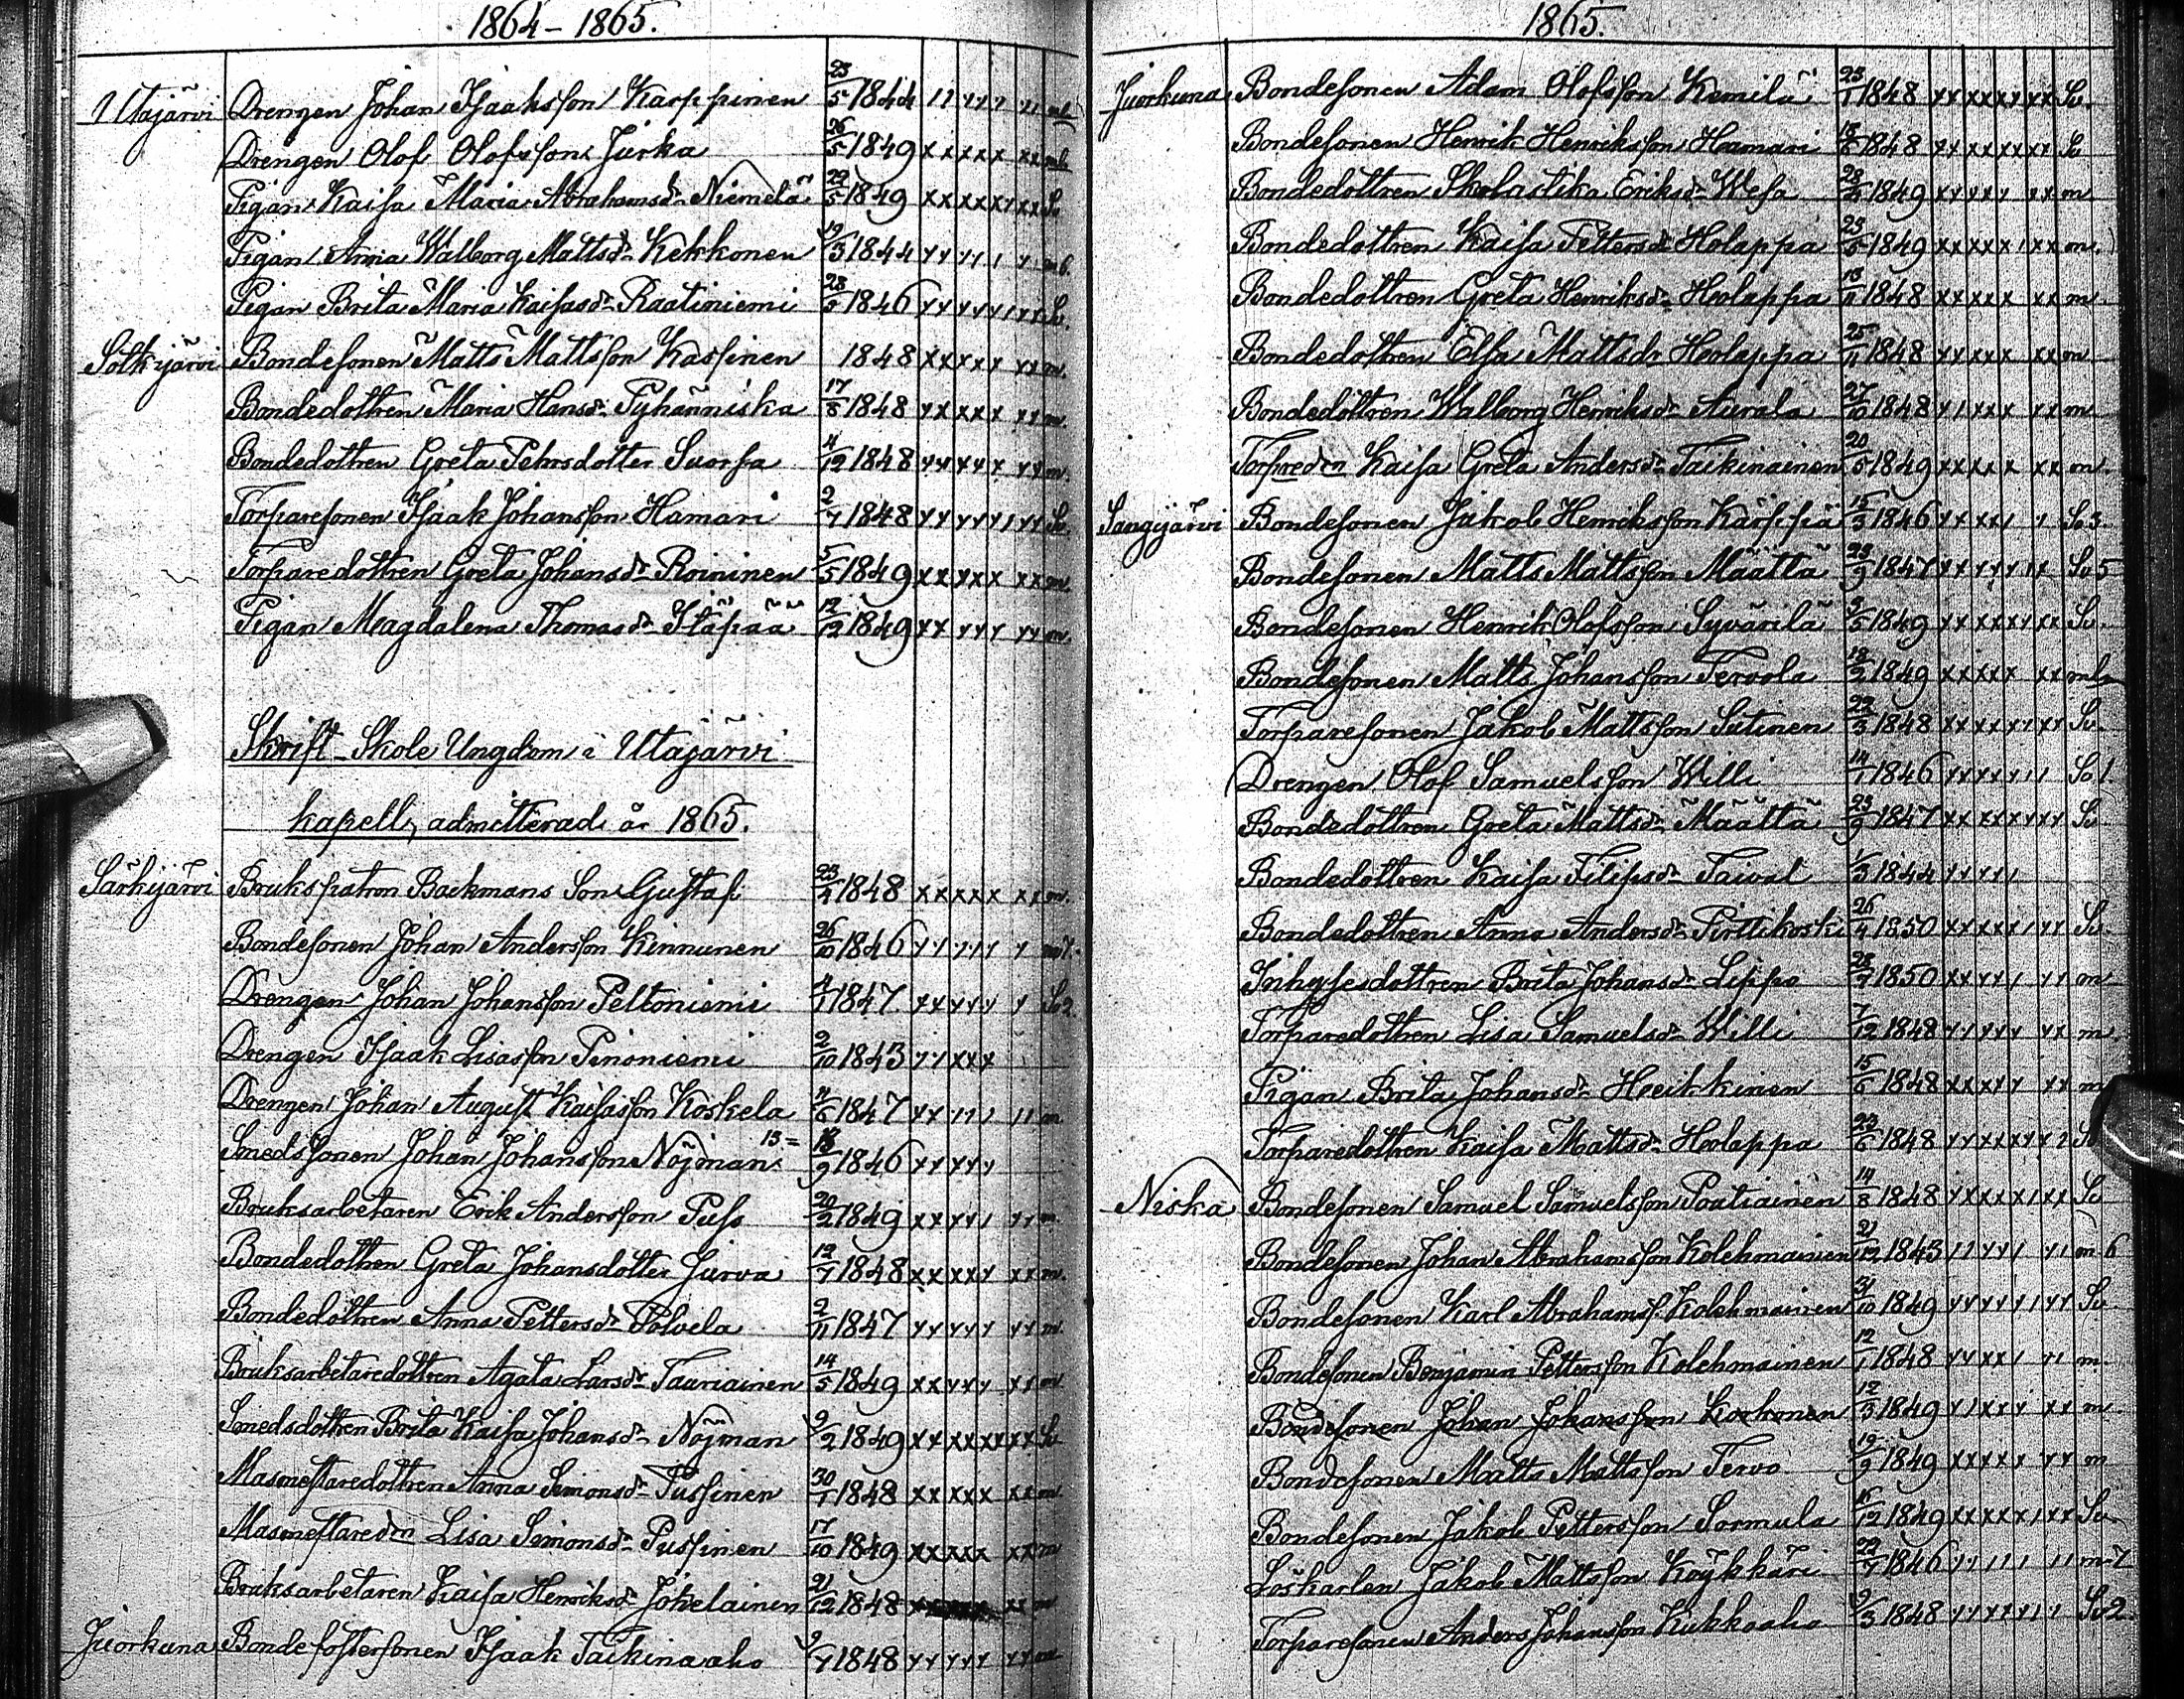 1864–1865.
Utajärvi Drengen Johan Isaaksson Karppinen 23/5 1844
Drengen Olof Olofsson Jurka 26/5 1849 x x x x x x x
Pigan Kaisa Maria Abrahamsdr Niemelä 29/5 1849 x x x x x x x x Sv
Pigan Anna Walborg Mattsdr Kekkonen 19/3 1844
Pigan Brita Maria Kaisasdr Raatiniemi 1846 Sv.
Sotkajärvi Bondesonen Matts Mattsson Kassinen 1848 x x x x x x x m.
Bondedottren Maria Hansdr Pyhänniska 17/8 1848 x x x x x x x m.
Bondedottren Greta Pehrsdotter Suorsa 4/12 1848 x x x x x x x m.
Torparesonen Isaak Johansson Hamari 2/7 1848 Sv.
Torparedottren Greta Johansdr Roininen 5/5 1849 x x x x x x x m.
Pigan Magdalena Thomasdr Itäpää 12/12 1849 m.
Skrift-Skole Ungdom i Utajärvi
kapell, admitterad år 1865.
Särkijärvi Brukspatron Backmans Son Gustaf 1848 x x x x x x x m.
Bondesonen Johan Andersson Kinnunen 26/10 1846 m 7.
Drengen Johan Johansson Peltoniemi 4/1 1847 Sv 2.
Drengen Isaak Lisasson Pinoniemi 2/10 1843
Drengen Johan August Kaisasson Koskela 4/6 1847 m
Smedssonen Johan Johansson Nöjman 13= 1846
Bruksarbetaren Erik Andersson Puss 20/2 1849 m
Bondedottren Greta Johansdotter Jurva 12/7 1848 x x x x x x x m.
Bondedottren Anna Pettersdr Polvela 2/11 1847 m.
Bruksarbetaredottren Agata Larsdr Tauriainen 14/5 1849 m
Smedsdottren Brita Kaisa Johansdr Nöjman 9/2 1849 x x x x x x x x Sv
Masmestaredottren Anna Simonsdr Pussinen 30/1 1848 x x x x x x x m
Masmestaredrn Lisa Simonsdr Pussinen 17/10 1849 x x x x x x x m
Bruksarbetaren Kaisa Henriksdr Jokelainen 21/12 1848
Juorkuna Bondefostersonen Isaak Taikinaaho 9/7 1848 m
1865.
Juorkuna Bondesonen Adam Olofsson Kemilä 23/1 1848 Sv.
Bondesonen Henrik Henriksson Hamari 1848 Sv
Bondedottren Skolastika Eriksdr Wesa 1849 m
Bondedottren Kaisa Pettersdr Holappa 1849 m.
Bondedottren Greta Henriksdr Holappa 1848 x x x x x x x m
Bondedottren Elsa Mattsdr Holappa 25/11 1848 m
Bondedottren Walborg Henriksdr Aurala 27/10 1848 m
Torpredrn Kaisa Greta Andersdr Taikinainen 20/5 1849 x x x x x x x m.
Sangijärvi Bondesonen Jakob Henriksson Kärppä 15/3 1846 Sv 3.
Bondesonen Matts Mattsson Määttä 23/9 1847 Sv 5
Bondesonen Henrik Olofsson Syvärilä 1849 Sv.
Bondesonen Matts Johansson Tervola 18/2 1849 x x x x x x x
Torparesonen Jakob Mattsson Sutinen 22/3 1848 Sv.
Drengen Olof Samuelsson Willi 14/1 1846 Sv 1.
Bondedottren Greta Mattsdr Määttä 23/9 1847 Sv
Bondedottren Kaisa Filipsdr Taival 1/3 1844
Bondedottren Anna Andersdr Pirttikoski 26/4 1850 Sv.
Inhysesdottren Brita Johansdr Lippo 1850 m
Torparedottren Lisa Samuelsdr Willi 7/12 1848 m.
Pigan Brita Johansdr Heikkinen 15/6 1848 m
Torparedottren Kaisa Mattsdr Holappa 23/6 1848 Sv
Niska Bondesonen Samuel Samuelsson Poutiainen 14/8 1848 Sv
Bondesonen Johan Abrahamsson Kolehmainen 21/12 1843 m 6
Bondesonen Karl Abrahamss. Kolehmainen 31/10 1849 Sv
Bondesonen Benjamin Pettersson Kolehmainen 12/1 1848 m.
Bondesonen Johan Johansson Korhonen 12/3 1849 m
Bondesonen Matts Mattsson Tervo 19/9 1849 m
Bondesonen Jakob Pettersson Sormula 1849 Sv
Löskarlen Jakob Mattsson Köykkäri 22/7 1846 m 7
Torparesonen Anders Johansson Kukkoaho 9/3 1848 Sv 2.